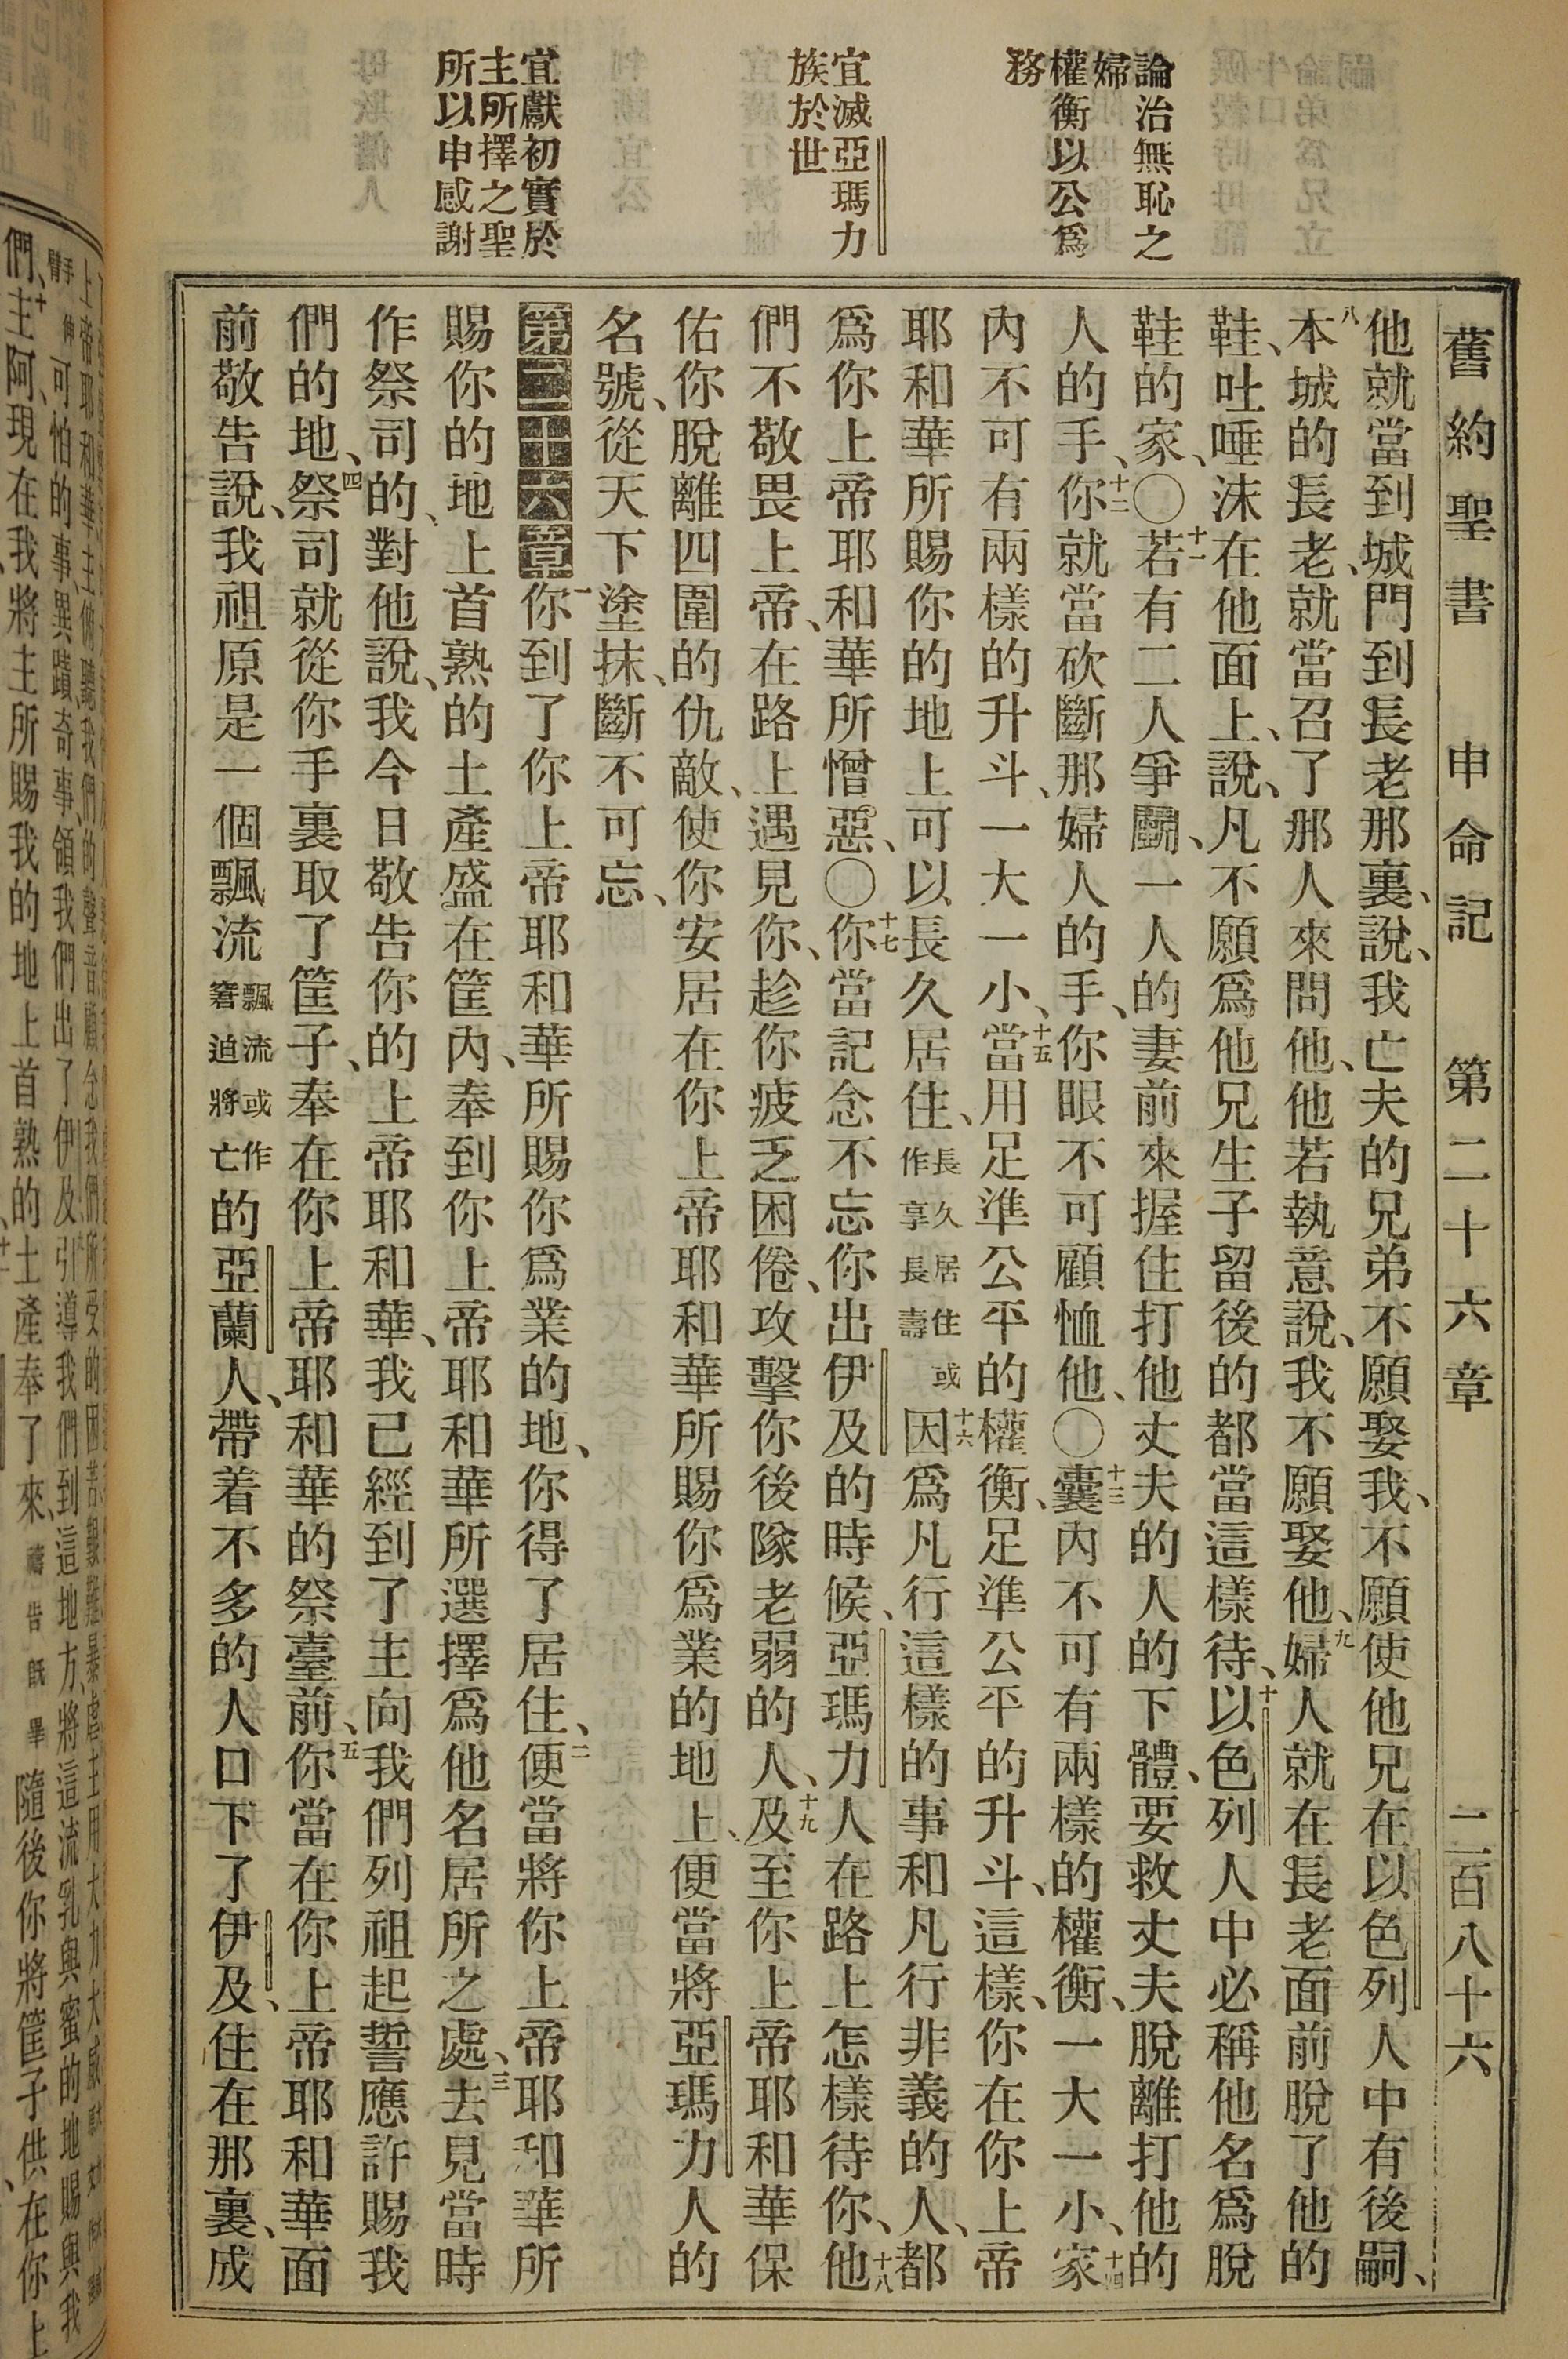 舊約聖書 申命記 第二十六章 二百八十六
論治無恥之
婦
權衡以公爲
務
宜滅亞瑪力
族於世
宜獻初實於
主所擇之聖
所以申感謝
他就當到城門到長老那裏、說、我亡夫的兄弟不願娶我、不願使他兄在以色列人中有後嗣、
八本城的長老、就當召了那人來問他、他若執意說、我不願娶他、九婦人就在長老面前脫了他的
鞋、吐唾沫在他面上、說、凡不願爲他兄生子留後的都當這樣待、十以色列人中必稱他名爲脫
鞋的家、〇十一若有二人爭鬭、一人的妻前來握住打他丈夫的人的下體、要救丈夫脫離打他的
人的手、十二你就當砍斷那婦人的手、你眼不可顧恤他、〇十三囊內不可有兩樣的權衡、一大一小、十四家
內不可有兩樣的升斗、一大一小、十五當用足準公平的權衡、足準公平的升斗、這樣、你在你上帝
耶和華所賜你的地上可以長久居住、長久居住或作享長壽十六因爲凡行這樣的事和凡行非義的人、都
爲你上帝耶和華所憎惡、〇十七你當記念不忘你出伊及的時候、亞瑪力人在路上怎樣待你、十八他
們不敬畏上帝、在路上遇見你、趁你疲乏困倦、攻擊你後隊老弱的人、十九及至你上帝耶和華保
佑你脫離四圍的仇敵、使你安居在你上帝耶和華所賜你爲業的地上、便當將亞瑪力人的
名號、從天下塗抹、斷不可忘、
第二十六章 一你到了你上帝耶和華所賜你爲業的地、你得了居住、二便當將你上帝耶和華所
賜你的地上首熟的土產盛在筐內、奉到你上帝耶和華所選擇爲他名居所之處、三去見當時
作祭司的、對他說、我今日敬告你的上帝耶和華、我已經到了主向我們列祖起誓應許賜我
們的地、四祭司就從你手裏取了筐子、奉在你上帝耶和華的祭臺前、五你當在你上帝耶和華面
前敬告說、我祖原是一個飄流飄流或作窘迫將亡的亞蘭人、帶着不多的人口下了伊及、住在那裏、成
上帝耶和華、主俯聽我們的聲音、顧念我們所受的困苦艱難暴虐、主用大力大威
可怕的事異蹟奇事、領我們出了伊及、引導我們到這地方、將這流乳與蜜的地賜與我
們、十主阿、現在我將主所賜我的地上首熟的土產奉了來、禱告既畢隨後你將筐子供在你上